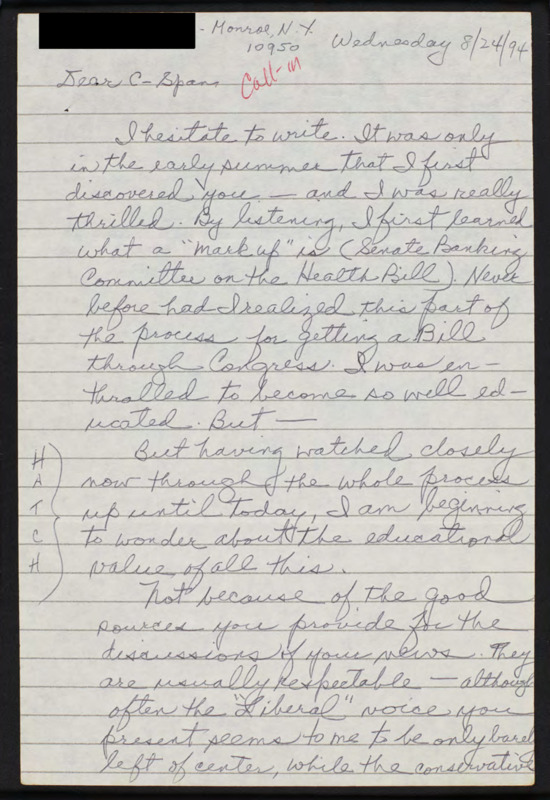 - Monroe, N.Y.
10950
Wednesday 8/24/94
Dear C-Span,
Call-in
I hesitate to write. It was only
in the early summer that I first
discovered you — and I was really
thrilled. By listening, I first learned
what a "mark up" is (Senate Banking
Committee on the Health Bill). Never
before had I realized this part of
the process for getting a Bill
through Congress. I was en-
thralled to become so well ed-
ucated. But —
But having watched closely
now through the whole process
up until today, I am beginning
to wonder about the educational
value of all this.
HATCH
Not because of the good
sources you provide for the
discussions of your news. They
are usually respectable — although
often the "Liberal" voice you
present seems to me to be only barel
left of center, while the conservative